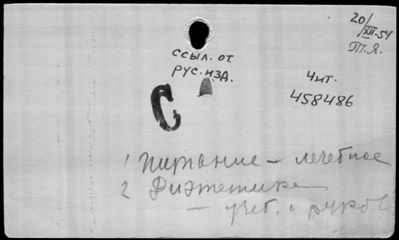 20/XII-54
Т.Я.
ссыл. от
рус. изд.
Чит.
458486
С
1 Питание – лечебное
2 Диэтетика
– учеб. и руков